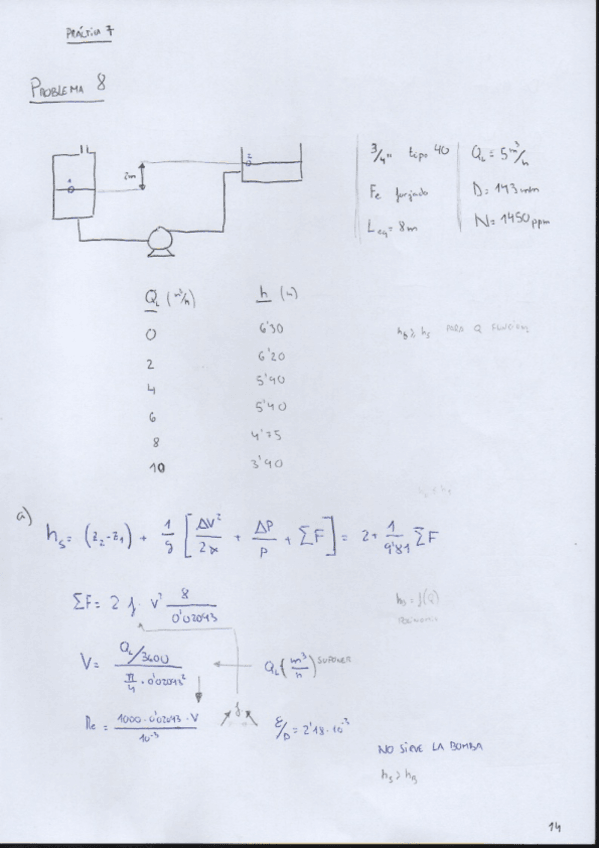 PRÁCTICA 7
PROBLEMA 8
2m
3/4" tipo 40
Fe forjado
Leq = 8m
QL = 5 m³/h
D = 143 mm
N = 1450 rpm
QL (m³/h) h (m)
0 6'30
2 6'20
4 5'90
6 5'40
8 4'75
10 3'90
hB ≥ hS PARA Q FUNCIONE
a)
hS = (z2-z1) + 1/g [ΔV²/2α + ΔP/ρ + ΣF] = 2 + 1/9'81 ΣF
ΣF = 2 f · V² 8/0'02093
hS = f(Q)
V = (QL/3600)/(π/4 · 0'02093²) ← QL (m³/h) SUPONER
Re = (1000 · 0'02093 · V)/10⁻³
f
ε/D = 2'18 · 10⁻³
NO SIRVE LA BOMBA
hS > hB
14